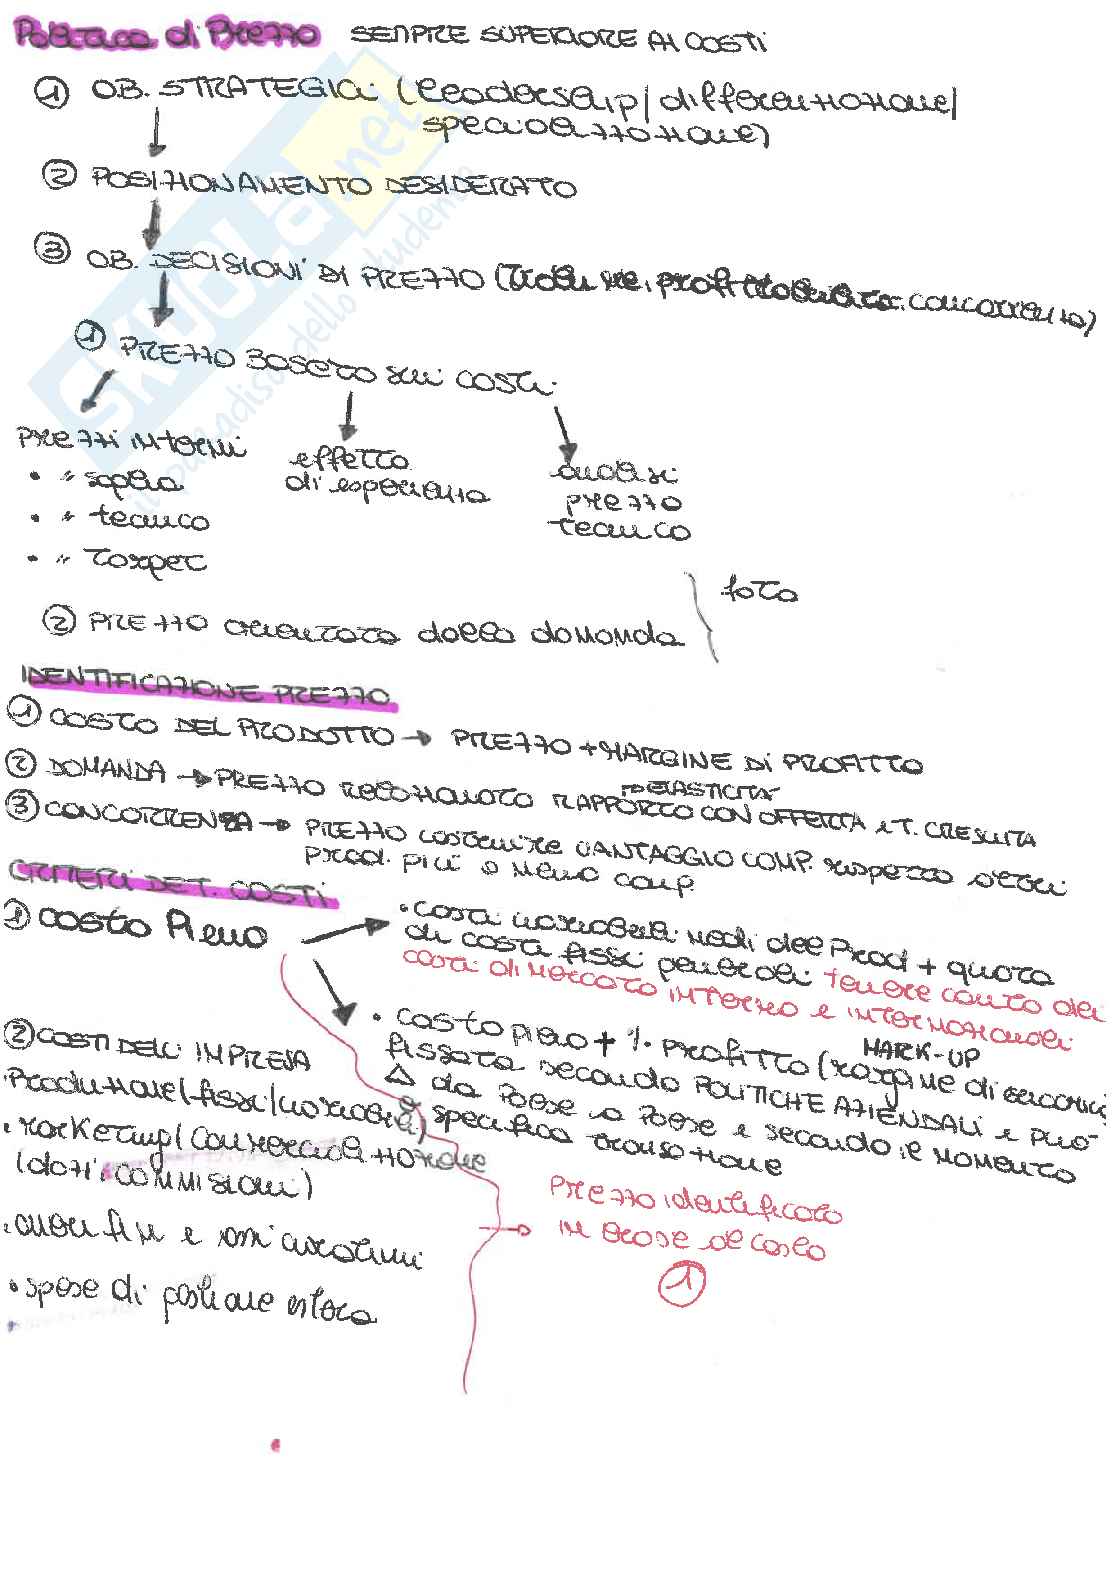 Politica di Prezzo SEMPRE SUPERIORE AI COSTI
① OB. STRATEGICI (leadership/differenziazione/
specializzazione)
② POSIZIONAMENTO DESIDERATO
③ OB. DECISIONI DI PREZZO (volume, profitto, concorrenza)
① PREZZO basato sui costi
prezzi interni
effetto
analisi
• " soglia
di esperienza
prezzo
• " tecnico
tecnico
• " Target
foto
② PREZZO orientato dalla domanda
IDENTIFICAZIONE PREZZO
① COSTO DEL PRODOTTO → PREZZO + MARGINE DI PROFITTO
② DOMANDA → PREZZO RAPPORTO CON OFFERTA e T. CRESCITA
ELASTICITÀ
③ CONCORRENZA → PREZZO costruire VANTAGGIO COMP. rispetto
prod. più o meno comp.
CRITERI DET. COSTI
① COSTO Pieno
• costi variabili medi del Prod + quota
di costi fissi generali tenere conto dei
costi di mercato interno e internazionali
• costo pieno + % profitto (margine di
MARK-UP
fissato secondo POLITICHE AZIENDALI e può
Δ da Paese a Paese e secondo il MOMENTO
specifica transazione
② COSTI DELL'IMPRESA
• Produzione (fissi/variabili)
• marketing/commercializzazione
(dazi, commissioni)
• oneri fin e assicurativi
• spese di gestione estera
→ Prezzo identificato
in base al costo
①
Skuola.net
il paradiso dello studente